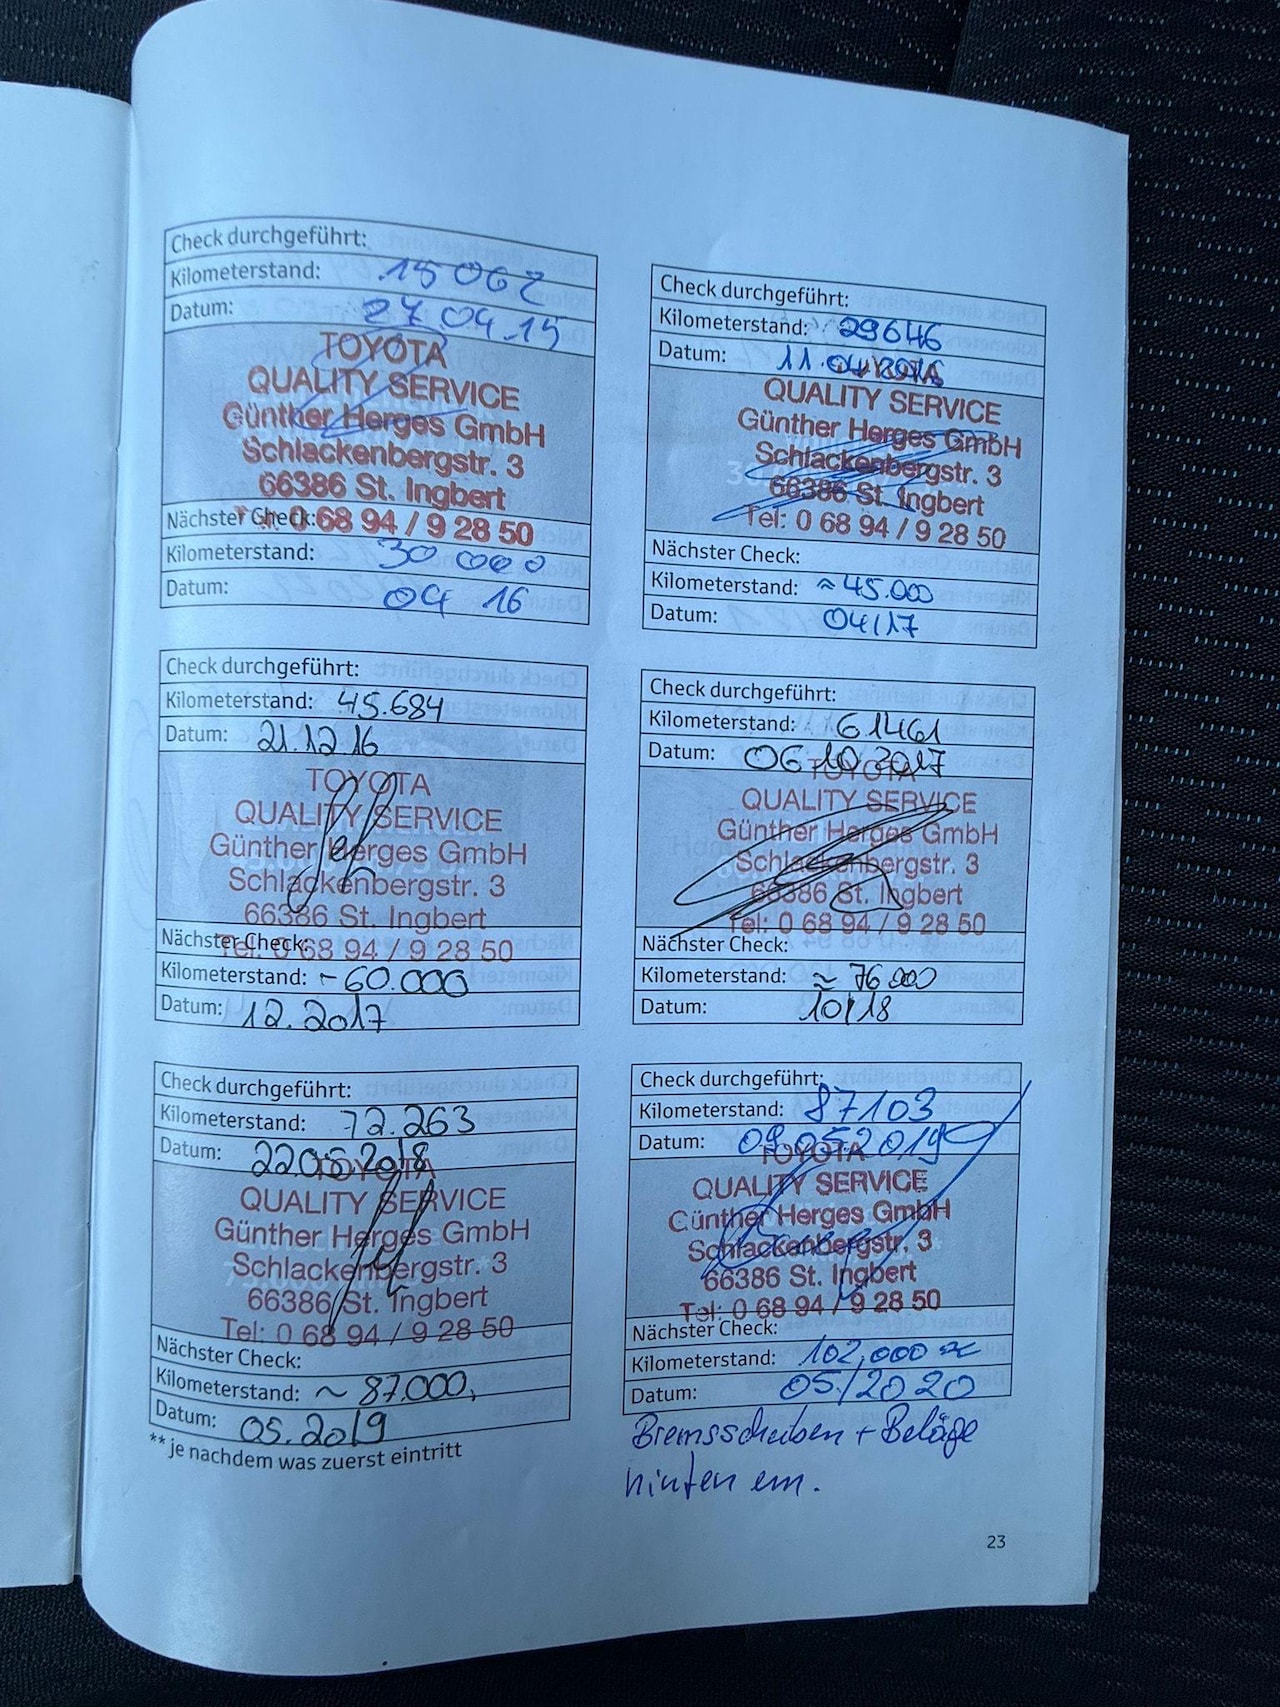 Check durchgeführt:
Kilometerstand: 15062
Datum: 27.04.15
TOYOTA
QUALITY SERVICE
Günther Herges GmbH
Schlackenbergstr. 3
66386 St. Ingbert
Nächster Check:
0 68 94 / 9 28 50
Kilometerstand: 30000
Datum: 04 16
Check durchgeführt:
Kilometerstand: 29646
Datum: 11.04.2016
TOYOTA
QUALITY SERVICE
Günther Herges GmbH
Schlackenbergstr. 3
66386 St. Ingbert
Tel: 0 68 94 / 9 28 50
Nächster Check:
Kilometerstand: ≈ 45.000
Datum: 04/17
Check durchgeführt:
Kilometerstand: 45.684
Datum: 21.12.16
TOYOTA
QUALITY SERVICE
Günther Herges GmbH
Schlackenbergstr. 3
66386 St. Ingbert
Nächster Check:
Tel: 0 68 94 / 9 28 50
Kilometerstand: ~ 60.000
Datum: 12.2017
Check durchgeführt:
Kilometerstand: 61461
Datum: 06.10.2017
TOYOTA
QUALITY SERVICE
Günther Herges GmbH
Schlackenbergstr. 3
66386 St. Ingbert
Tel: 0 68 94 / 9 28 50
Nächster Check:
Kilometerstand: ≈ 76000
Datum: 10/18
Check durchgeführt:
Kilometerstand: 72.263
Datum: 22.05.2018
TOYOTA
QUALITY SERVICE
Günther Herges GmbH
Schlackenbergstr. 3
66386 St. Ingbert
Tel: 0 68 94 / 9 28 50
Nächster Check:
Kilometerstand: ~ 87.000,
Datum: 05.2019
** je nachdem was zuerst eintritt
Check durchgeführt:
Kilometerstand: 87103
Datum: 09.05.2019
TOYOTA
QUALITY SERVICE
Günther Herges GmbH
Schlackenbergstr. 3
66386 St. Ingbert
Tel: 0 68 94 / 9 28 50
Nächster Check:
Kilometerstand: 102,000
Datum: 05/2020
Bremsscheiben + Beläge
hinten ern.
23